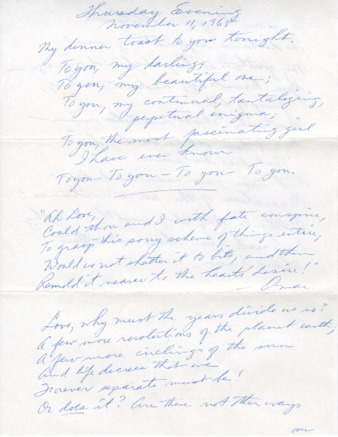 Thursday Evening
November 11, 1965
My dinner toast to you tonight.
To you, my darling,
To you, my beautiful one;
To you, my continual, tantalizing,
perpetual enigma;
To you, the most fascinating girl
I have ever known
To you – To you – To you – To you.
"Ah Love,
Could thou and I with fate conspire,
To grasp this sorry scheme of things entire,
Would we not shatter it to bits, and then
Remold it nearer to the hearts' desire!"
– Omar
Love, why must the years divide us so?
A few more revolutions of the planet earth,
A few more circlings of the sun
And life decrees that we
Forever separate must be!
Or does it? Are there not other ways
over